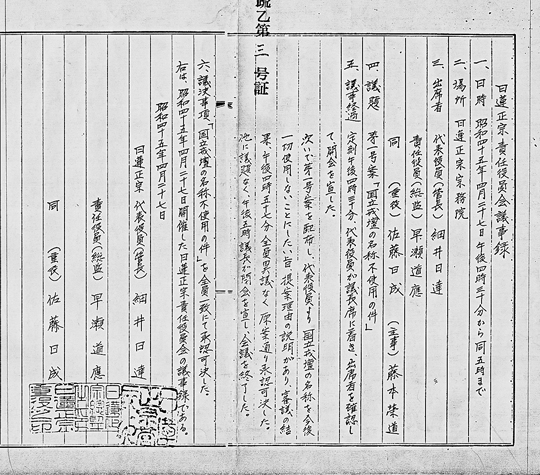 疏乙第三号証
日蓮正宗責任役員会議事録
一、日時　昭和四十五年四月二十七日午後四時三十分から同五時まで
二、場所　日蓮正宗宗務院
三、出席者　代表役員(管長)　細井日達
責任役員(総監)　早瀬道應
同　(重役)　佐藤日成　(主事)　藤本栄道
四、議題　第一号案「国立戒壇の名称不使用の件」
五、議事経過　定刻午後四時三十分、代表役員が議長席に着き、出席者を確認し
て開会を宣した。
次いで第一号案を配布し、代表役員より国立戒壇の名称を今後
一切使用しないことにしたい旨、提案理由の説明があり、審議の結
果、午後四時五十七分全員異議なく原案通り承認可決した。
他に議題なく、午後五時議長が閉会を宣し、会議を終了した。
六、議決事項「国立戒壇の名称不使用の件」を全員一致にて承認可決した。
右は、昭和四十五年四月二十七日開催した日蓮正宗責任役員会の議事録である。
昭和四十五年四月二十七日
日蓮正宗　代表役員(管長)　細井日達
責任役員(総監)　早瀬道應
同　(重役)　佐藤日成